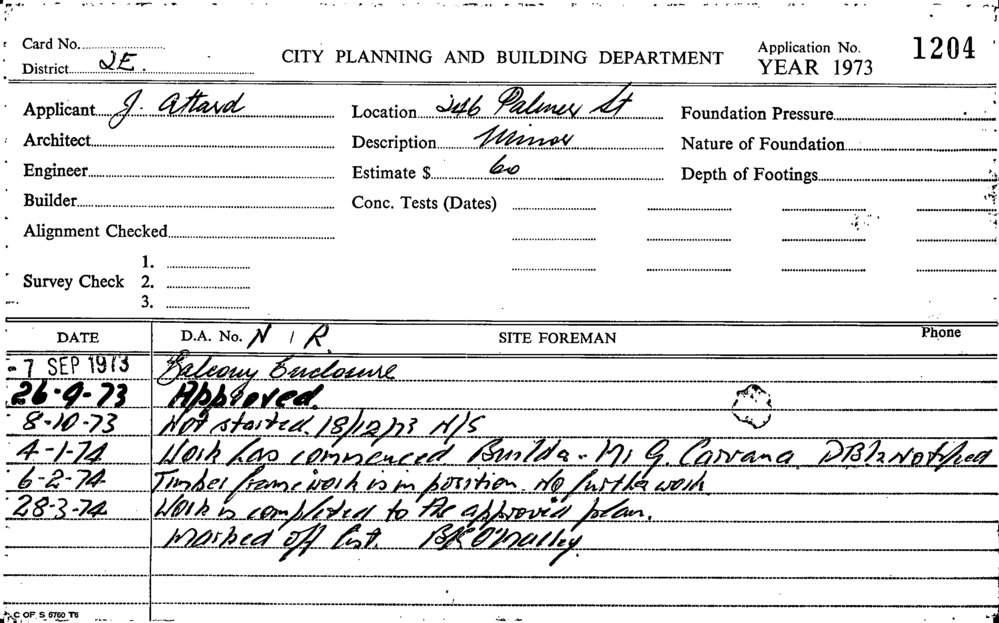 Card No.
District 2E.
CITY PLANNING AND BUILDING DEPARTMENT
Application No. 1204
YEAR 1973
Applicant J. Attard
Location 246 Palmer St
Foundation Pressure
Architect
Description Minor
Nature of Foundation
Engineer
Estimate $ 60
Depth of Footings
Builder
Conc. Tests (Dates)
Alignment Checked
Survey Check
1.
2.
3.
DATE D.A. No. N / R. SITE FOREMAN Phone
- 7 SEP 1973 Balcony Enclosure
26-9-73 Approved.
8-10-73 Not started. 18/12/73 N/S
4-1-74 Work has commenced Builda - Mr G. Carvana Notified
6-2-74 Timber framework is in position. No further work
28-3-74 Work is completed to the approved plan.
Marked off list. O'Malley.
C OF S 6760 T6